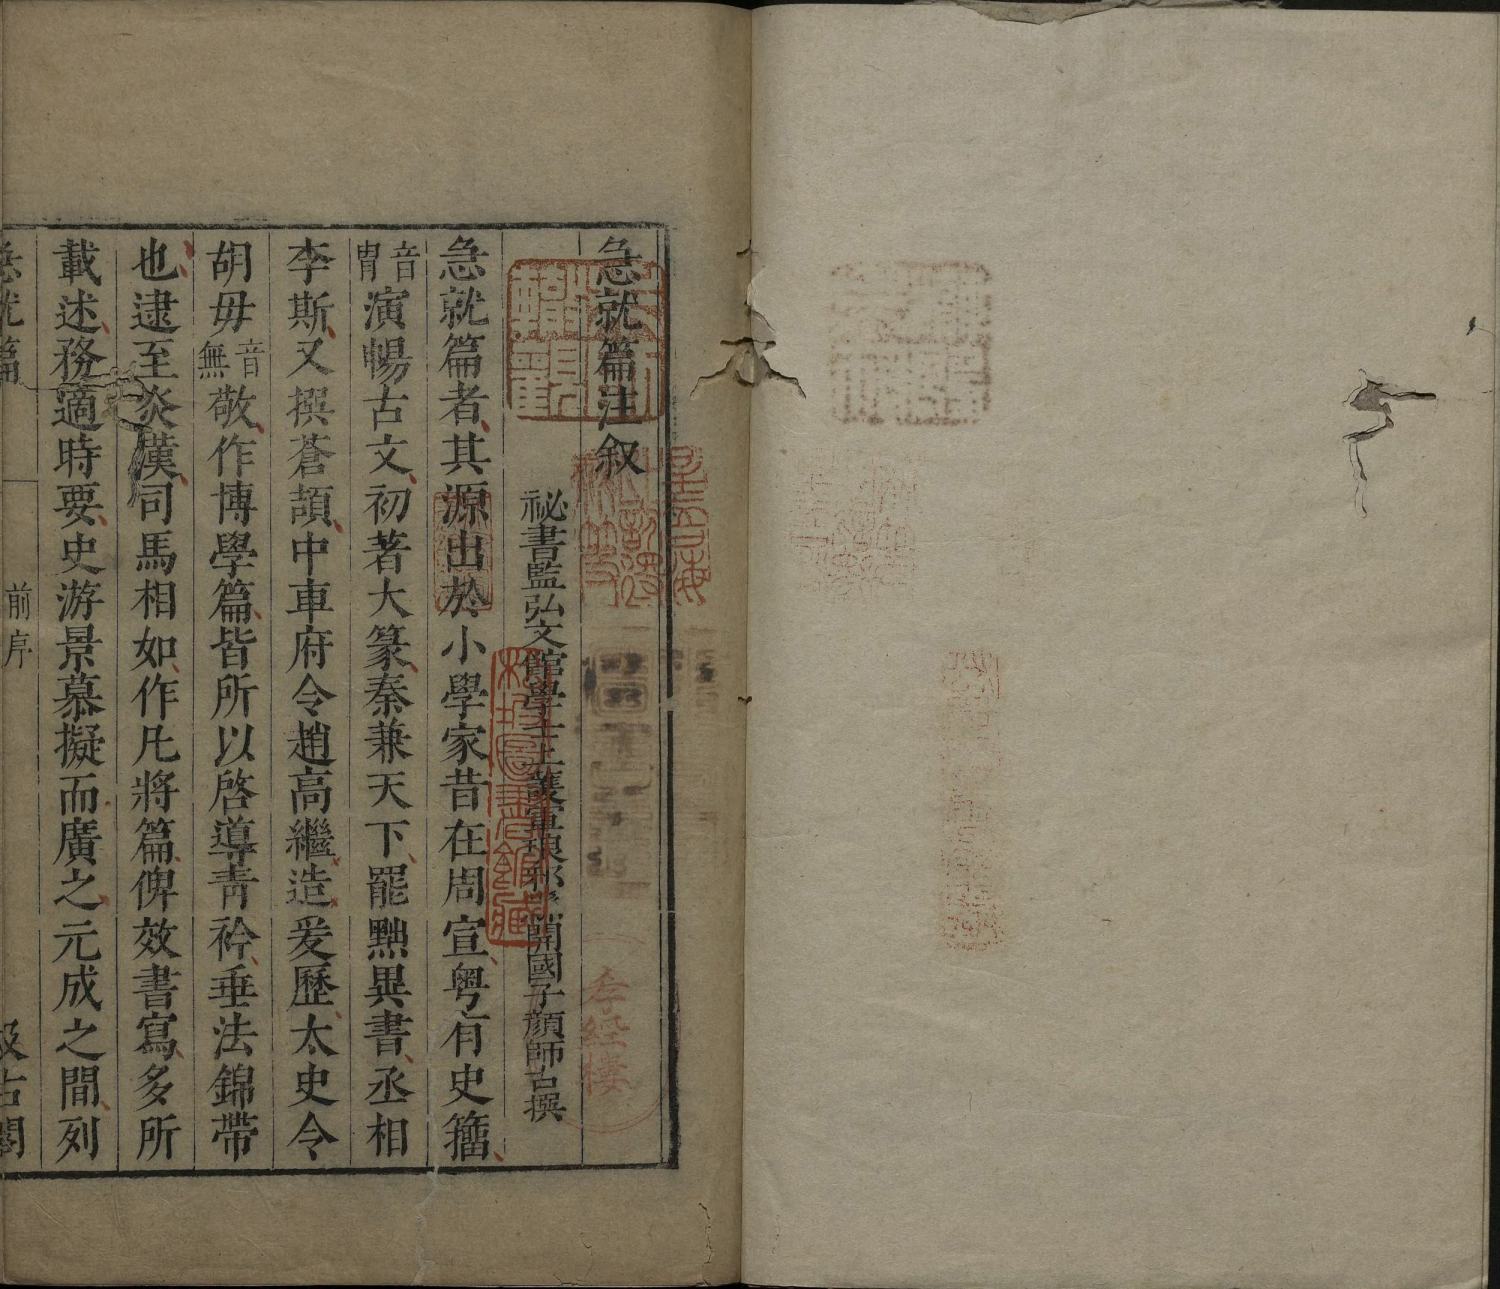 急就篇注叙
祕書監弘文館學士上護軍琅邪縣開國子顔師古撰
急就篇者其源出於小學家昔在周宣粤有史籀
音冑演暢古文初著大篆秦兼天下罷黜異書丞相
李斯又撰蒼頡中車府令趙高繼造爰歷太史令
胡毋音無敬作博學篇皆所以啓導青衿垂法錦帶
也逮至炎漢司馬相如作凡將篇俾效書寫多所
載述務適時要史游景慕擬而廣之元成之間列
急就篇
前序
汲古閣
孝經樓